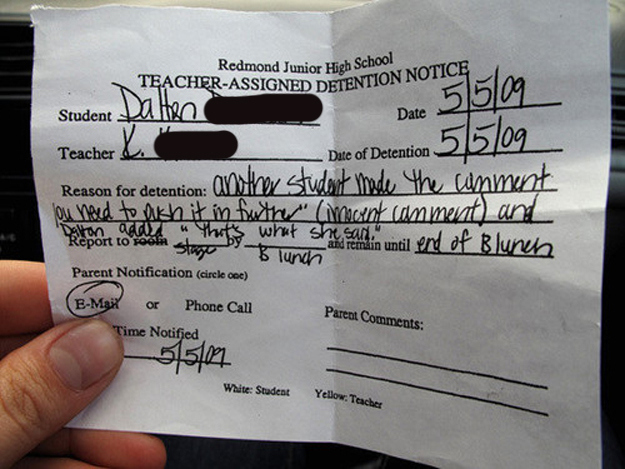 Redmond Junior High School
TEACHER-ASSIGNED DETENTION NOTICE
Student Dalton Date 5/5/09
Teacher K. Date of Detention 5/5/09
Reason for detention: another student made the comment
"you need to push it in further" (innocent comment) and
Dalton added "that's what she said."
Report to room stage by B lunch and remain until end of B lunch
Parent Notification (circle one)
E-Mail or Phone Call Parent Comments:
Time Notified
5/5/09
White: Student Yellow: Teacher